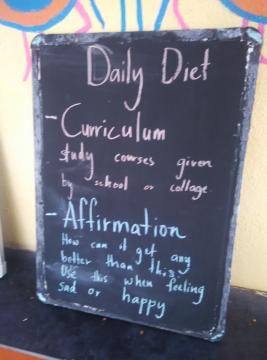 Daily Diet
- Curriculum
study courses given
by school or collage
- Affirmation
How can it get any
better than this
Use this when feeling
sad or happy